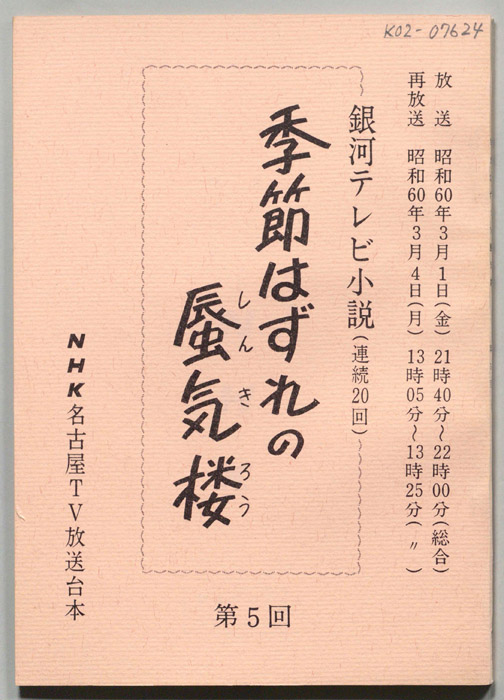 K02-07624
放送 昭和60年3月1日(金) 21時40分~22時00分(総合)
再放送 昭和60年3月4日(月) 13時05分~13時25分(〃)
銀河テレビ小説(連続20回)
季節はずれの
蜃気楼
しんきろう
第5回
NHK名古屋TV放送台本